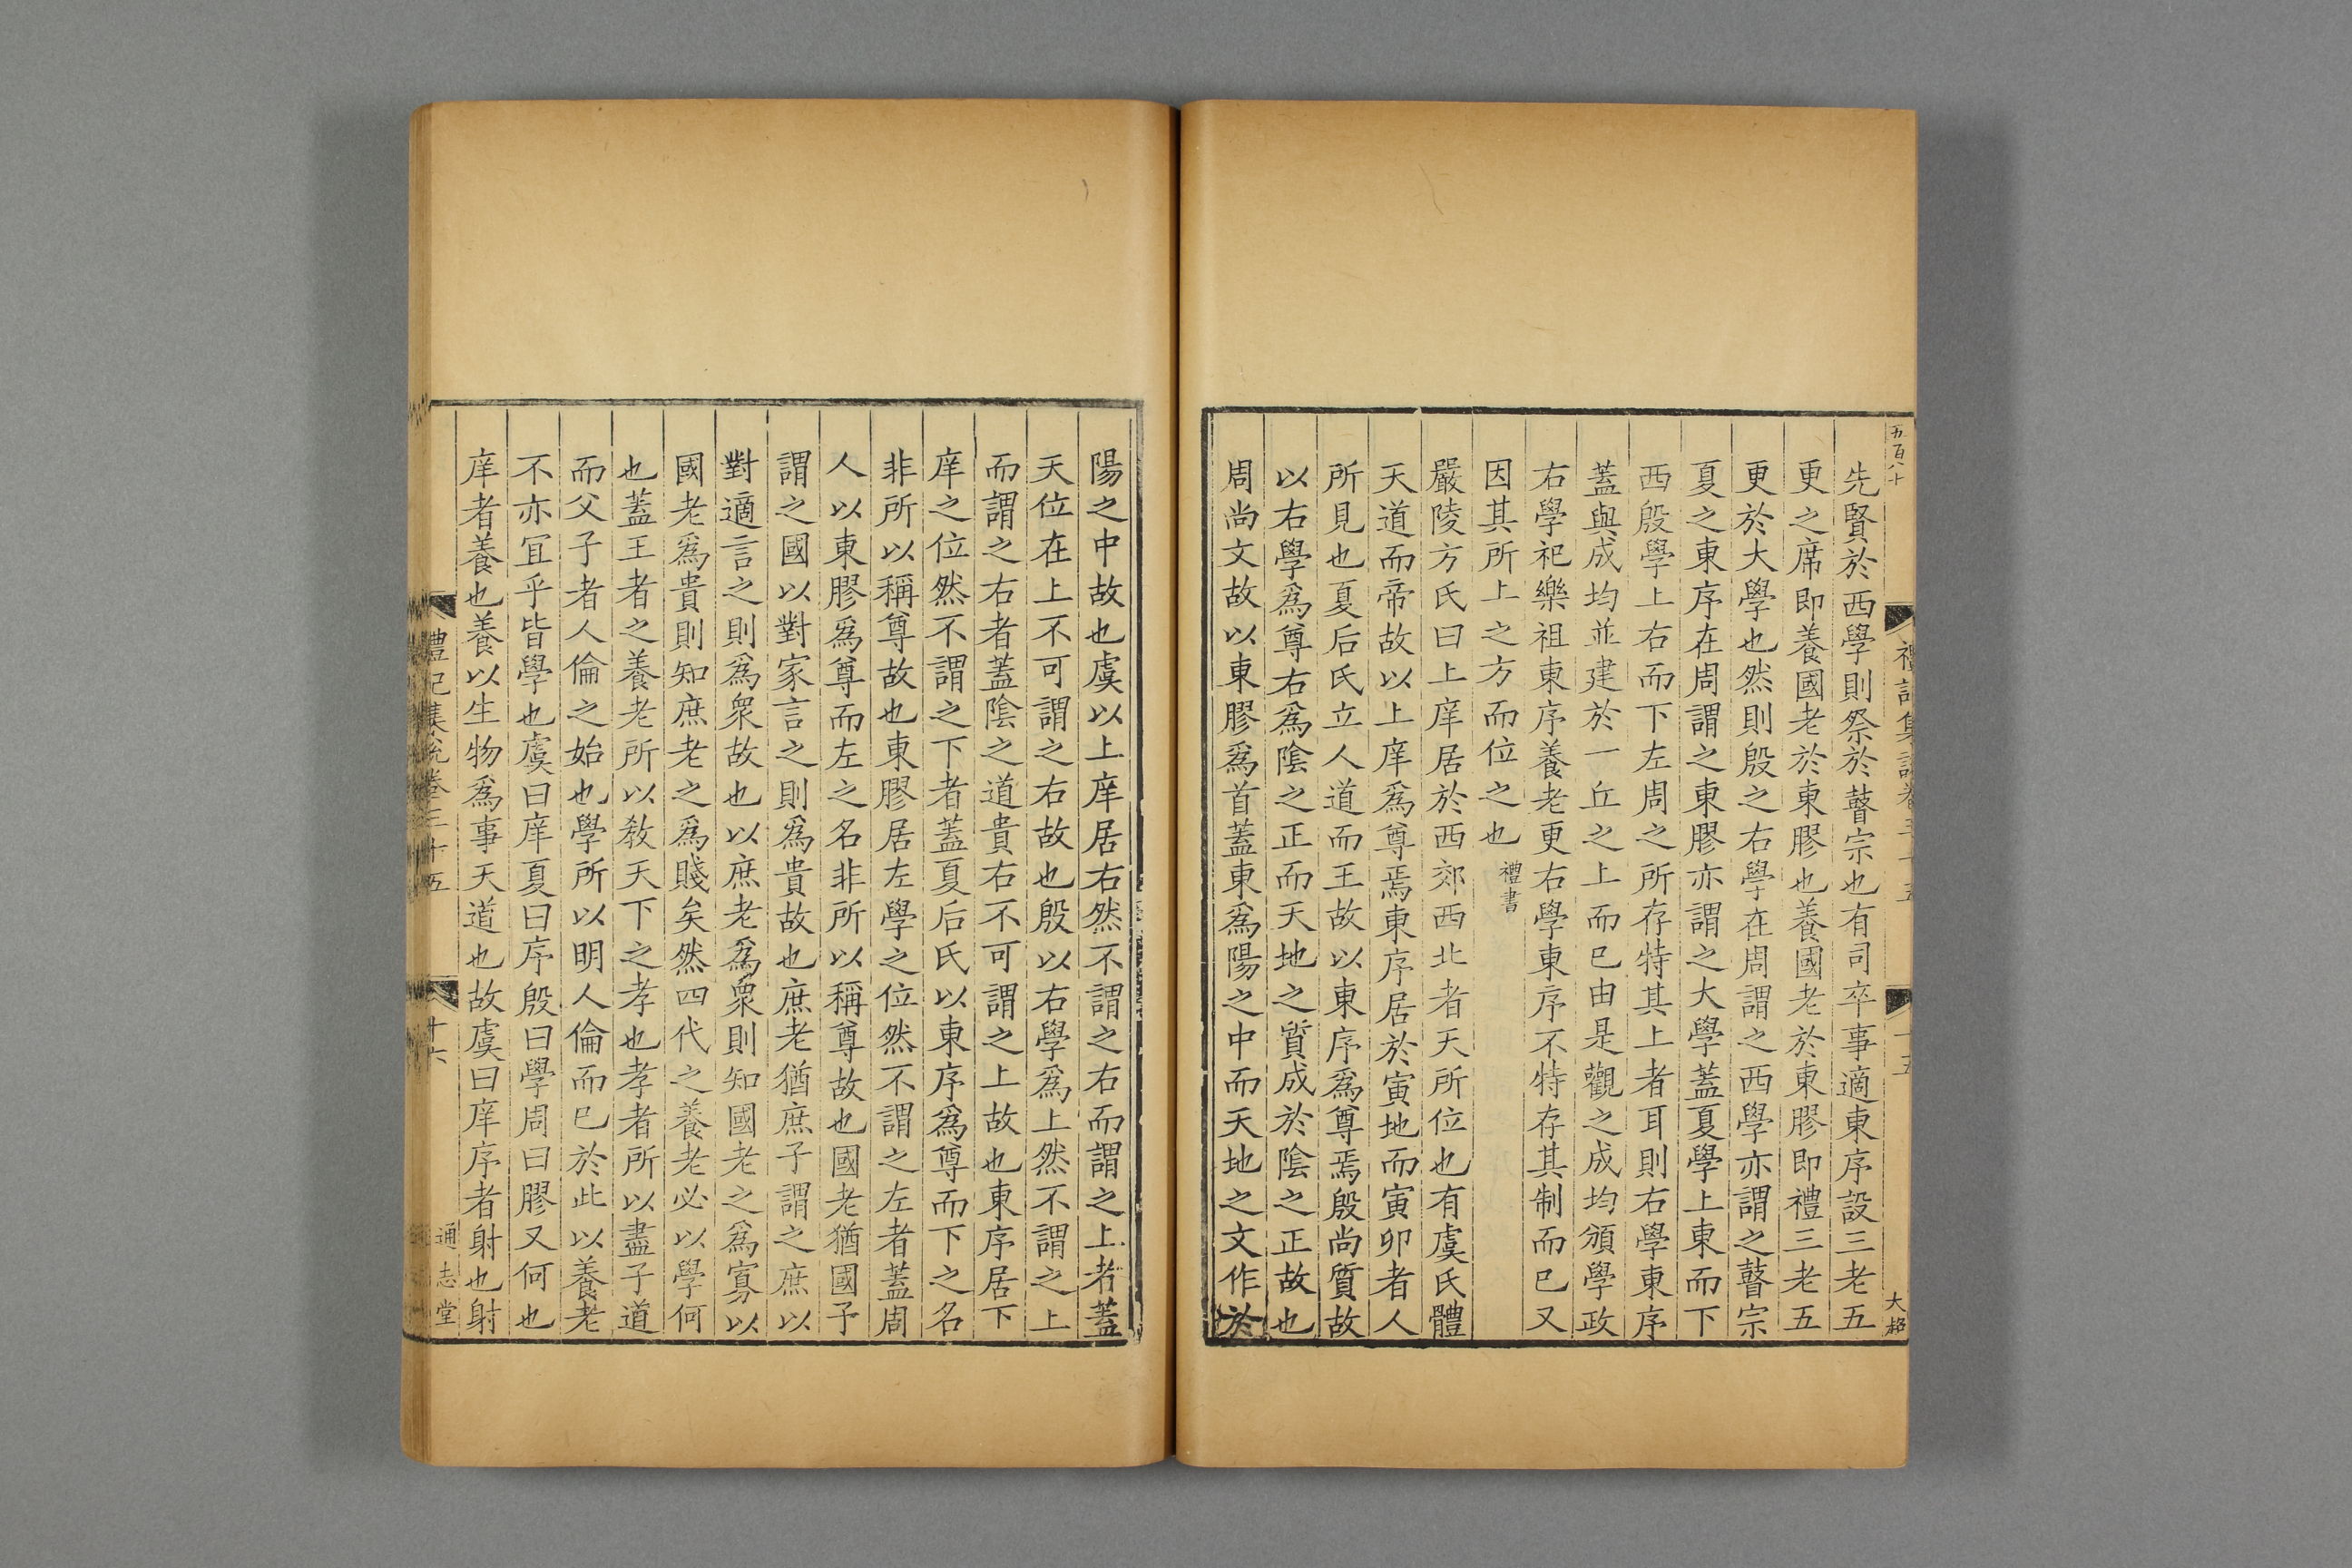 五百八十
禮記集說卷三十五
十五
大招
先賢於西學則祭於瞽宗也有司卒事適東序設三老五
更之席即養國老於東膠也養國老於東膠即禮三老五
更於大學也然則殷之右學在周謂之西學亦謂之瞽宗
夏之東序在周謂之東膠亦謂之大學蓋夏學上東而下
西殷學上右而下左周之所存特其上者耳則右學東序
蓋與成均並建於一丘之上而已由是觀之成均頒學政
右學祀樂祖東序養老更右學東序不特存其制而已又
因其所上之方而位之也禮書
嚴陵方氏曰上庠居於西郊西北者天所位也有虞氏體
天道而帝故以上庠爲尊焉東序居於寅地而寅卯者人
所見也夏后氏立人道而王故以東序爲尊焉殷尚質故
以右學爲尊右爲陰之正而天地之質成於陰之正故也
周尚文故以東膠爲首蓋東爲陽之中而天地之文作於
陽之中故也虞以上庠居右然不謂之右而謂之上者蓋
天位在上不可謂之右故也殷以右學爲上然不謂之上
而謂之右者蓋陰之道貴右不可謂之上故也東序居下
庠之位然不謂之下者蓋夏后氏以東序爲尊而下之名
非所以稱尊故也東膠居左學之位然不謂之左者蓋周
人以東膠爲尊而左之名非所以稱尊故也國老猶國子
謂之國以對家言之則爲貴故也庶老猶庶子謂之庶以
對適言之則爲衆故也以庶老爲衆則知國老之爲寡以
國老爲貴則知庶老之爲賤矣然四代之養老必以學何
也蓋王者之養老所以敎天下之孝也孝者所以盡子道
而父子者人倫之始也學所以明人倫而已於此以養老
不亦宜乎皆學也虞曰庠夏曰序殷曰學周曰膠又何也
庠者養也養以生物爲事天道也故虞曰庠序者射也射
禮記集說卷三十五
十六
通志堂